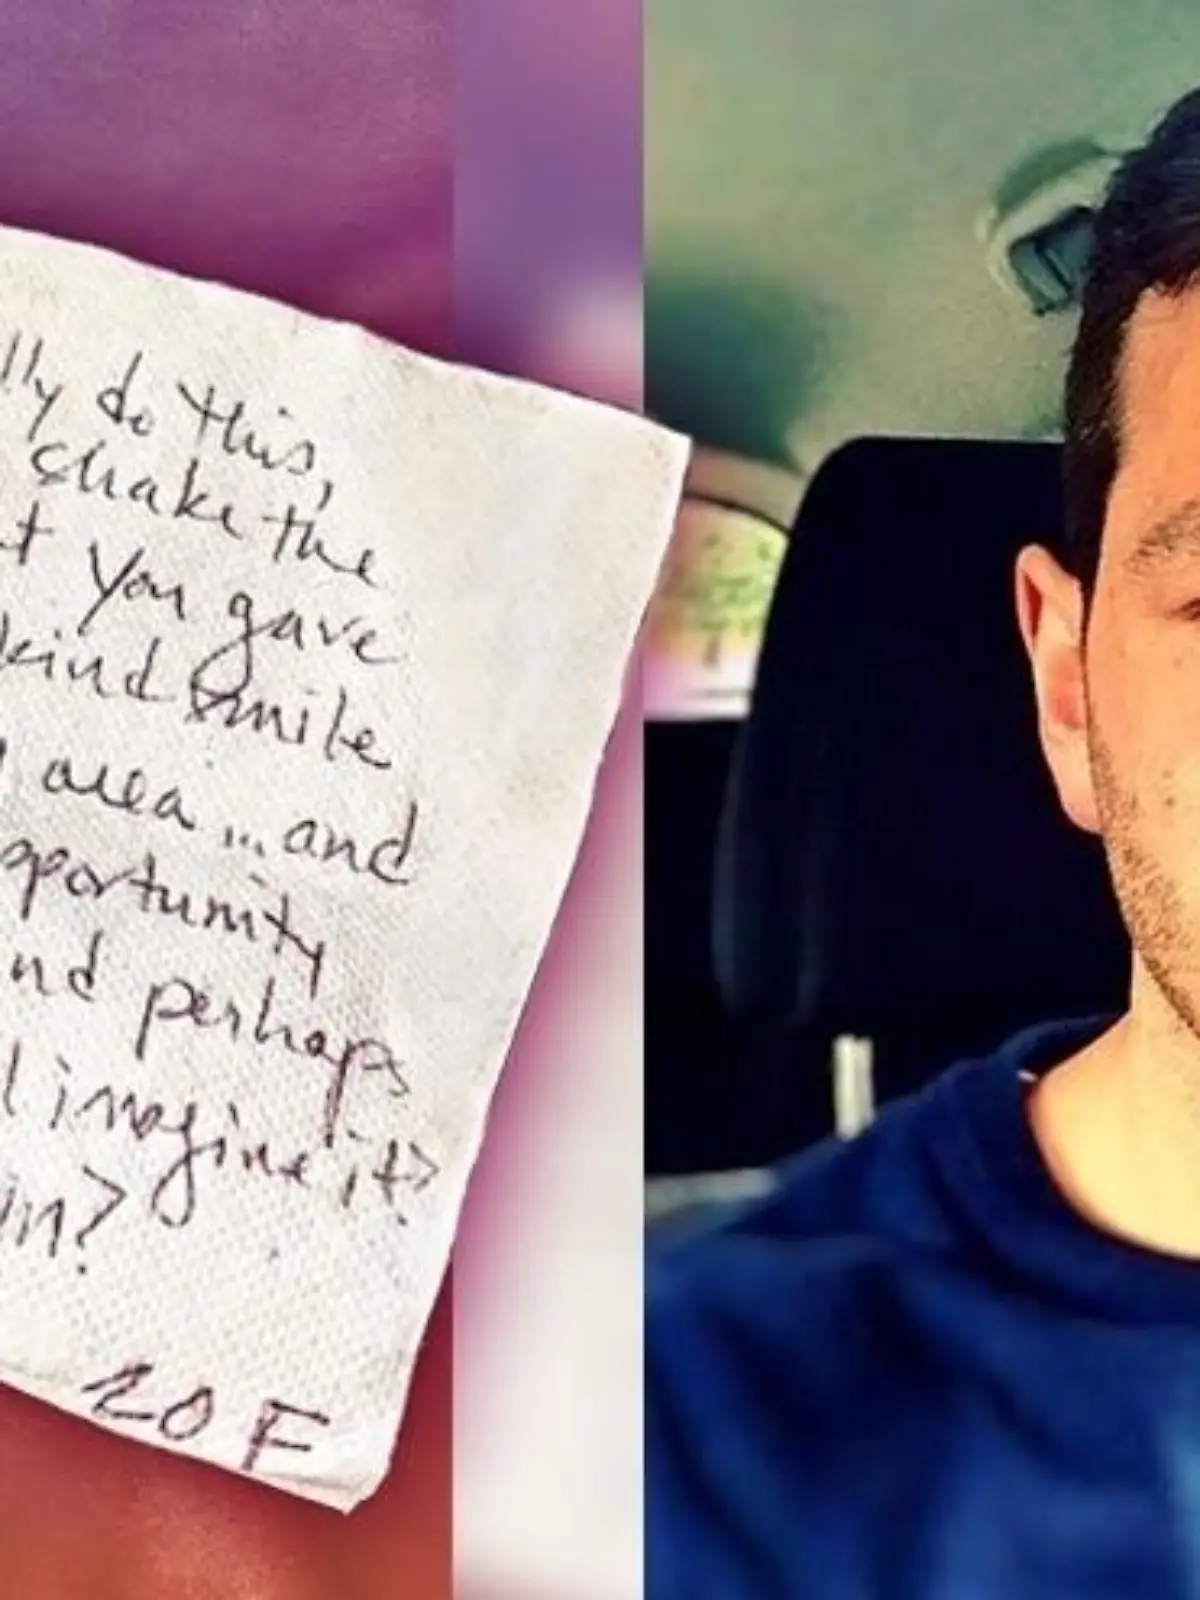 lly do this,
shake the
t you gave
kind smile
area ... and
pportunity
nd perhaps
l imagine it?
in?
20 F